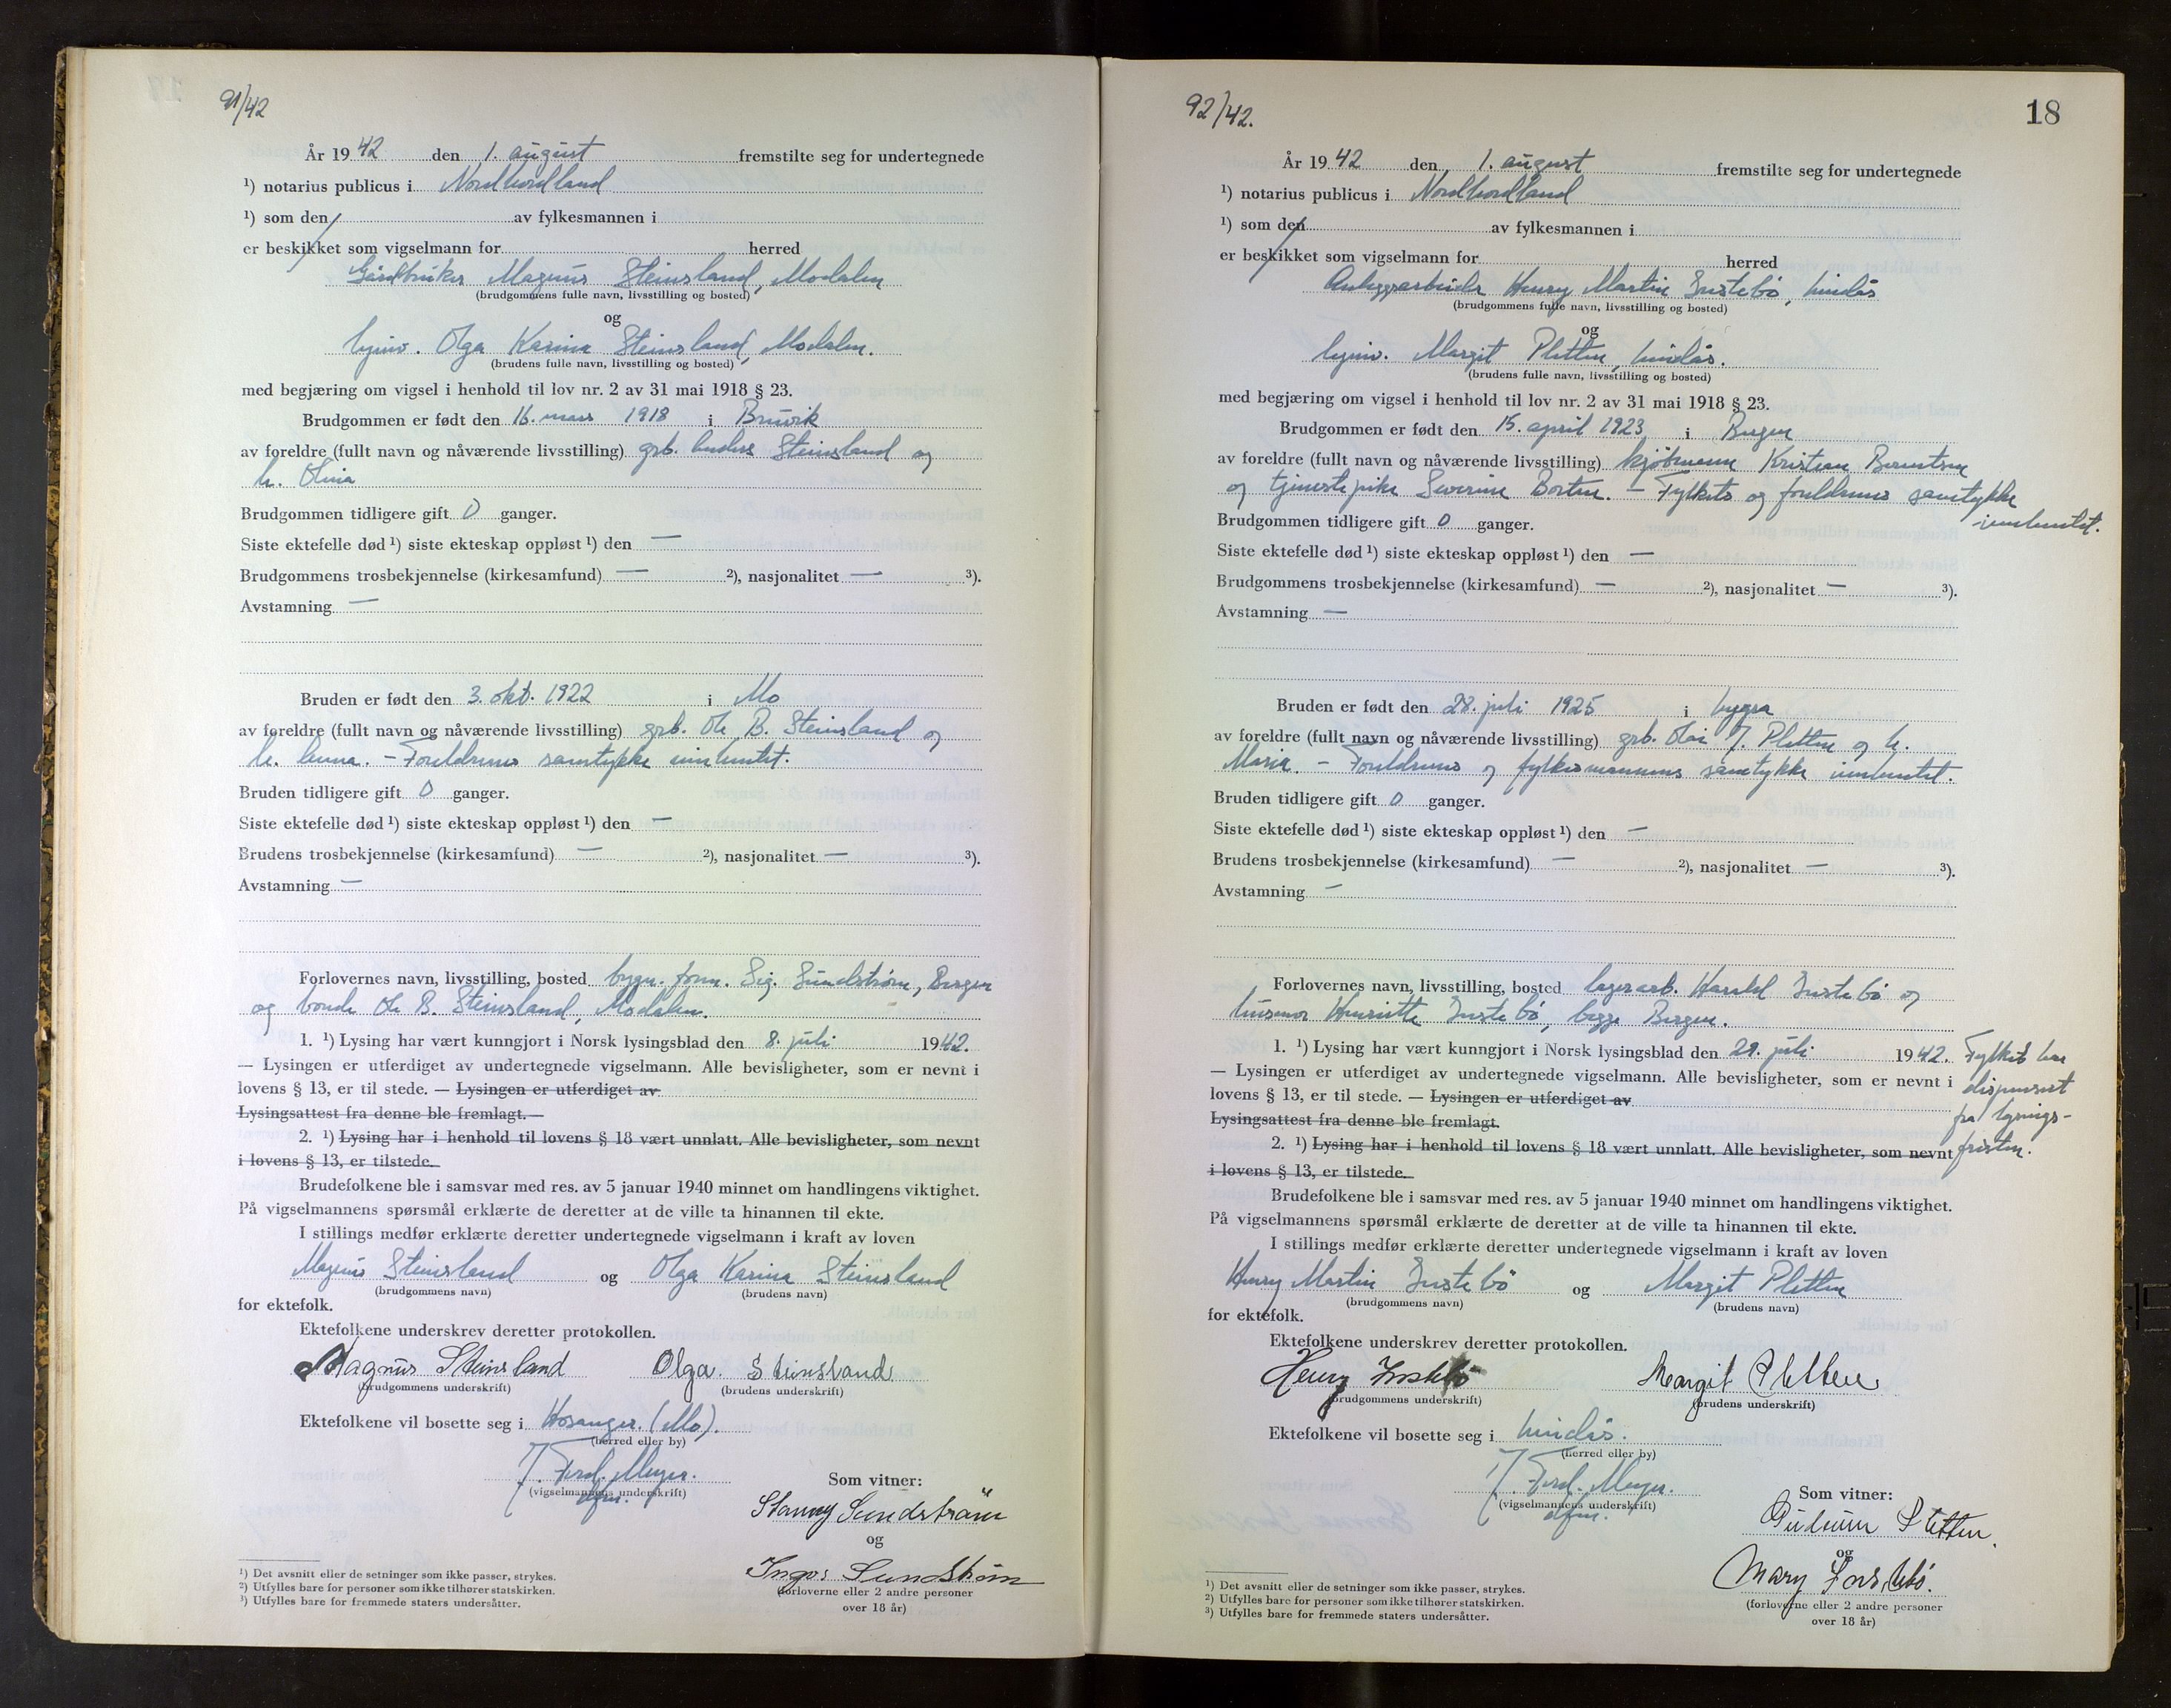 91/42
År 1942 den 1. august fremstilte seg for undertegnede
¹) notarius publicus i Nordhordland
¹) som den av fylkesmannen i
er beskikket som vigselmann for herred
Gårdbruker Magnus Steinsland, Modalen
(brudgommens fulle navn, livsstilling og bosted)
og
Olga Karina Steinsland, Modalen.
(brudens fulle navn, livsstilling og bosted)
med begjæring om vigsel i henhold til lov nr. 2 av 31 mai 1918 § 23.
Brudgommen er født den 16. mars 1918 i Bruvik
av foreldre (fullt navn og nåværende livsstilling) grb. Anders Steinsland og
h. Olina
Brudgommen tidligere gift 0 ganger.
Siste ektefelle død ¹) siste ekteskap oppløst ¹) den —
Brudgommens trosbekjennelse (kirkesamfund) — ²), nasjonalitet — ³).
Avstamning —
Bruden er født den 3. okt. 1922 i Mo
av foreldre (fullt navn og nåværende livsstilling) grb. Ole B. Steinsland og
h. Anna. – Foreldrenes samtykke innhentet.
Bruden tidligere gift 0 ganger.
Siste ektefelle død ¹) siste ekteskap oppløst ¹) den —
Brudens trosbekjennelse (kirkesamfund) — ²), nasjonalitet — ³).
Avstamning —
Forlovernes navn, livsstilling, bosted bygn. form. Sig. Sundstrøm, Bergen
og bonde Ole B. Steinsland, Modalen.
1. ¹) Lysing har vært kunngjort i Norsk lysingsblad den 8. juli 1942.
— Lysingen er utferdiget av undertegnede vigselmann. Alle bevisligheter, som er nevnt i
lovens § 13, er til stede. — Lysingen er utferdiget av
Lysingsattest fra denne ble fremlagt.—
2. ¹) Lysing har i henhold til lovens § 18 vært unnlatt. Alle bevisligheter, som nevnt
i lovens § 13, er tilstede.
Brudefolkene ble i samsvar med res. av 5 januar 1940 minnet om handlingens viktighet.
På vigselmannens spørsmål erklærte de deretter at de ville ta hinannen til ekte.
I stillings medfør erklærte deretter undertegnede vigselmann i kraft av loven
Magnus Steinsland og Olga Karina Steinsland
(brudgommens navn) (brudens navn)
for ektefolk.
Ektefolkene underskrev deretter protokollen.
Magnus Steinsland Olga. Steinsland
(brudgommens underskrift) (brudens underskrift)
Ektefolkene vil bosette seg i Hosanger. (Mo).
(herred eller by)
J. Ferd. Meyer.
(vigselmannens underskrift)
dfm.
Som vitner:
Stanny Sundström
og
Inger Sundström
(forloverne eller 2 andre personer
over 18 år)
¹) Det avsnitt eller de setninger som ikke passer, strykes.
²) Utfylles bare for personer som ikke tilhører statskirken.
³) Utfylles bare for fremmede staters undersåtter.
92/42.
18
År 1942 den 1. august fremstilte seg for undertegnede
¹) notarius publicus i Nordhordland
¹) som den av fylkesmannen i
er beskikket som vigselmann for herred
Anleggsarbeider Henry Martin Instebö, Lindås
(brudgommens fulle navn, livsstilling og bosted)
og
Margit Pletten, Lindås.
(brudens fulle navn, livsstilling og bosted)
med begjæring om vigsel i henhold til lov nr. 2 av 31 mai 1918 § 23.
Brudgommen er født den 15. april 1923 i Bergen
av foreldre (fullt navn og nåværende livsstilling) kjöbmann Kristian Berntsen
og tjenestepike Severine Borten. – Fylkets og foreldrenes samtykke
innhentet.
Brudgommen tidligere gift 0 ganger.
Siste ektefelle død ¹) siste ekteskap oppløst ¹) den —
Brudgommens trosbekjennelse (kirkesamfund) — ²), nasjonalitet — ³).
Avstamning —
Bruden er født den 28. juli 1925 i Lygra
av foreldre (fullt navn og nåværende livsstilling) grb. Olai J. Pletten og h.
Maria. – Foreldrenes og fylkesmannens samtykke innhentet.
Bruden tidligere gift 0 ganger.
Siste ektefelle død ¹) siste ekteskap oppløst ¹) den —
Brudens trosbekjennelse (kirkesamfund) — ²), nasjonalitet — ³).
Avstamning –
Forlovernes navn, livsstilling, bosted lagerarb. Harald Instebö og
husmor Henriette Instebö, begge Bergen.
1. ¹) Lysing har vært kunngjort i Norsk lysingsblad den 29. juli 1942.
— Lysingen er utferdiget av undertegnede vigselmann. Alle bevisligheter, som er nevnt i
lovens § 13, er til stede. — Lysingen er utferdiget av
Lysingsattest fra denne ble fremlagt.
2. ¹) Lysing har i henhold til lovens § 18 vært unnlatt. Alle bevisligheter, som nevnt
i lovens § 13, er tilstede.
Fylket har
dispensert
fra lysings-
fristen.
Brudefolkene ble i samsvar med res. av 5 januar 1940 minnet om handlingens viktighet.
På vigselmannens spørsmål erklærte de deretter at de ville ta hinannen til ekte.
I stillings medfør erklærte deretter undertegnede vigselmann i kraft av loven
Henry Martin Instebö og Margit Pletten
(brudgommens navn) (brudens navn)
for ektefolk.
Ektefolkene underskrev deretter protokollen.
Henry Instebö Margit Pletten
(brudgommens underskrift) (brudens underskrift)
Ektefolkene vil bosette seg i Lindås.
(herred eller by)
J. Ferd. Meyer.
(vigselmannens underskrift)
dfm.
Som vitner:
Gudrunn Pletten.
og
Mary Instebö.
(forloverne eller 2 andre personer
over 18 år)
¹) Det avsnitt eller de setninger som ikke passer, strykes.
²) Utfylles bare for personer som ikke tilhører statskirken.
³) Utfylles bare for fremmede staters undersåtter.